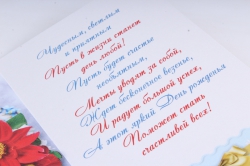 Чудесным, светлым
и приятным
Пусть в жизни станет
день любой!
Пусть будет счастье
необъятным,
Мечты уводят за собой,
Ждёт бесконечное везенье,
И радует большой успех,
А этот яркий День рожденья
Поможет стать
счастливей всех!